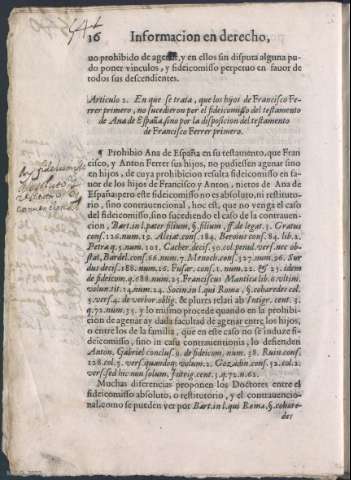 16 Informacion en derecho,
uo prohibido de agenar, y en ellos sin disputa alguna pu-
do poner vinculos, y fideicomisso perpetuo en fauor de
todos sus descendientes.
Articulo 2. En que se trata, que los hijos de Francisco Fe-
rrer primero, no sucedieron por el fideicomisso del testamento
de Ana de España, sino por la disposicion del testamento
de Francisco Ferrer primero.
¶ Prohibio Ana de España en su testamento, que Fran
cisco, y Anton Ferrer sus hijos, no pudiessen agenar sino
en hijos, de cuya prohibicion resulta fideicomisso en fa-
uor de los hijos de Francisco y Anton, nietos de Ana de
España: pero este fideicomisso no es absoluto, ni restituto-
rio, sino contrauencional, hoc est, que no venga el caso
del fideicomisso, sino sucediendo el caso de la contrauen-
cion, Bart. in l. pater filium, §. filium, ff. de legat. 3. Gratus
conf. 126. num. 19. Alciat. conf. 184. Beroius conf. 84. lib. 1.
Petra q. 5. num. 101. Cacher. decis. 50. col. penul. vers. nec ob-
stat, Bardel. conf. 66. num. 7. Menoch. conf. 327. num. 26. Sur
dus decis. 188. num. 16. Fusar. conf. 1. num. 22. & 25. idem
de fideicom. q. 688. num. 25. Franciscus Mantica lib. 6.
volun. tit. 14. num. 24. Socin. in l. qui Roma, §. cohæredes col.
3. vers. 4. de verbor. oblig. & plures relati ab Intrig. cent. 3.
q. 72. num. 35. y lo mismo procede quando en la prohibi-
cion de agenar ay dada facultad de agenar entre los hijos,
o entre los de la familia, que en este caso no se induze fi-
deicomisso, sino in casu contrauentionis, lo defienden
Anton. Gabriel conclus. 9. de fideicom. num. 38. Ruin. conf.
128. col. 5. vers. quandoq; volum. 2. Gozadin. conf. 52. col. 2.
vers. sed hic non solum, Intrig. cent. 3. q. 72. n. 62.
Muchas diferencias proponen los Doctores entre el
fideicomisso absoluto, o restitutorio, y el contrauencio-
nal, como se pueden ver por Bart. in l. qui Roma, §. cohære-
des